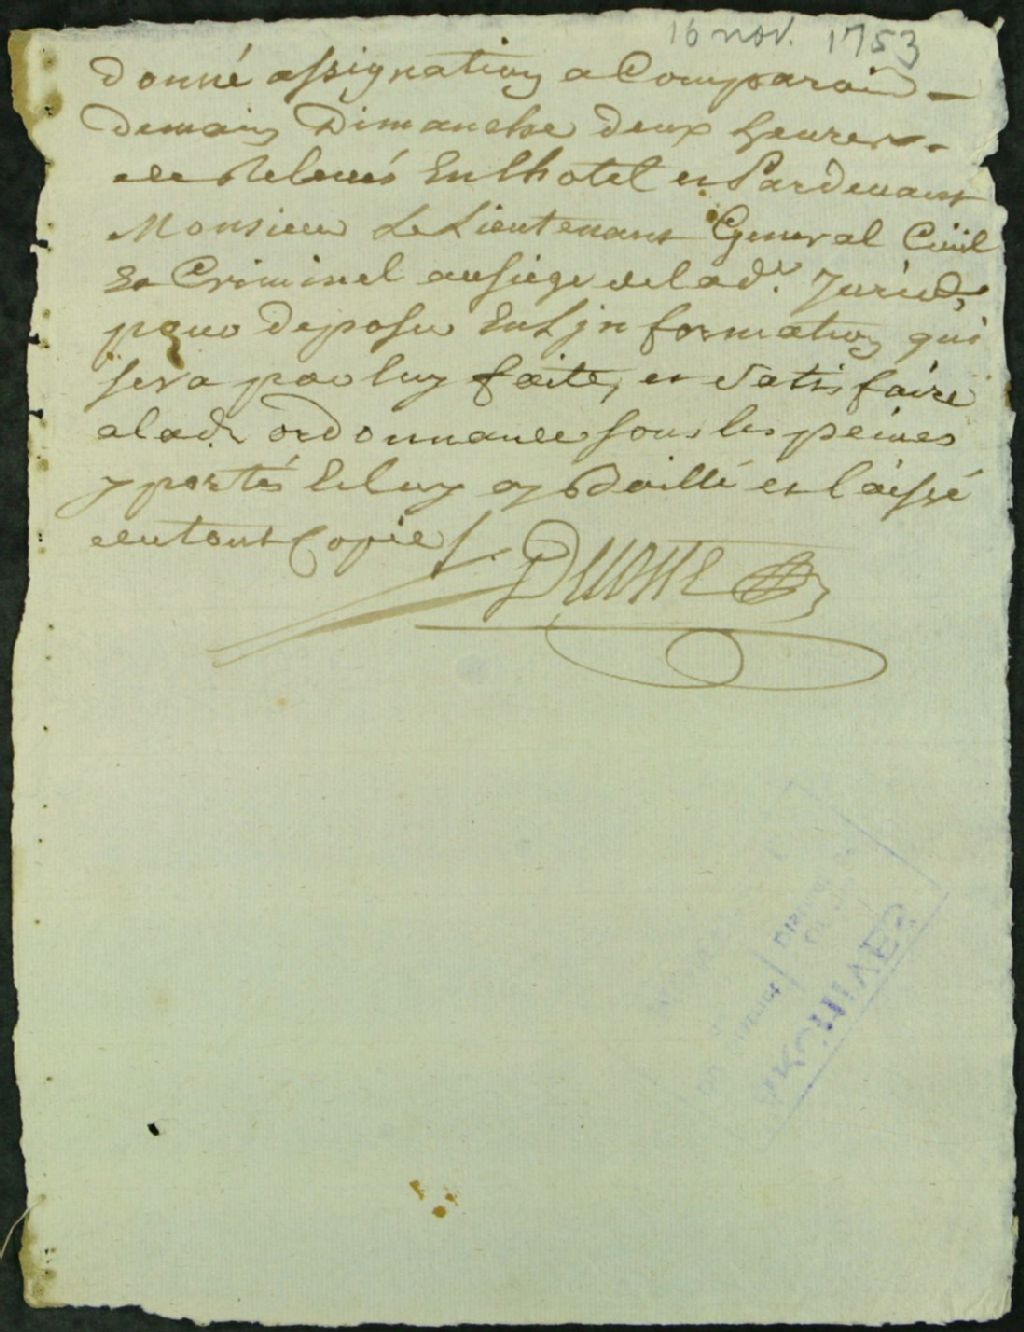 16 nov. 1753
donné assignation a Comparoir
demain Dimanche deux heures
de Relevés En lhotel et Pardevant
Monsieur Le Lieutenant General Civil
Et Criminel au siege de lad.
pour deposer En Ljnformation qui
sera par luy faite, et Satisfaire
a lad. ordonnance sous les peines
y portés Et luy ay Baillé et laissé
autant Copie
ARCHIVES